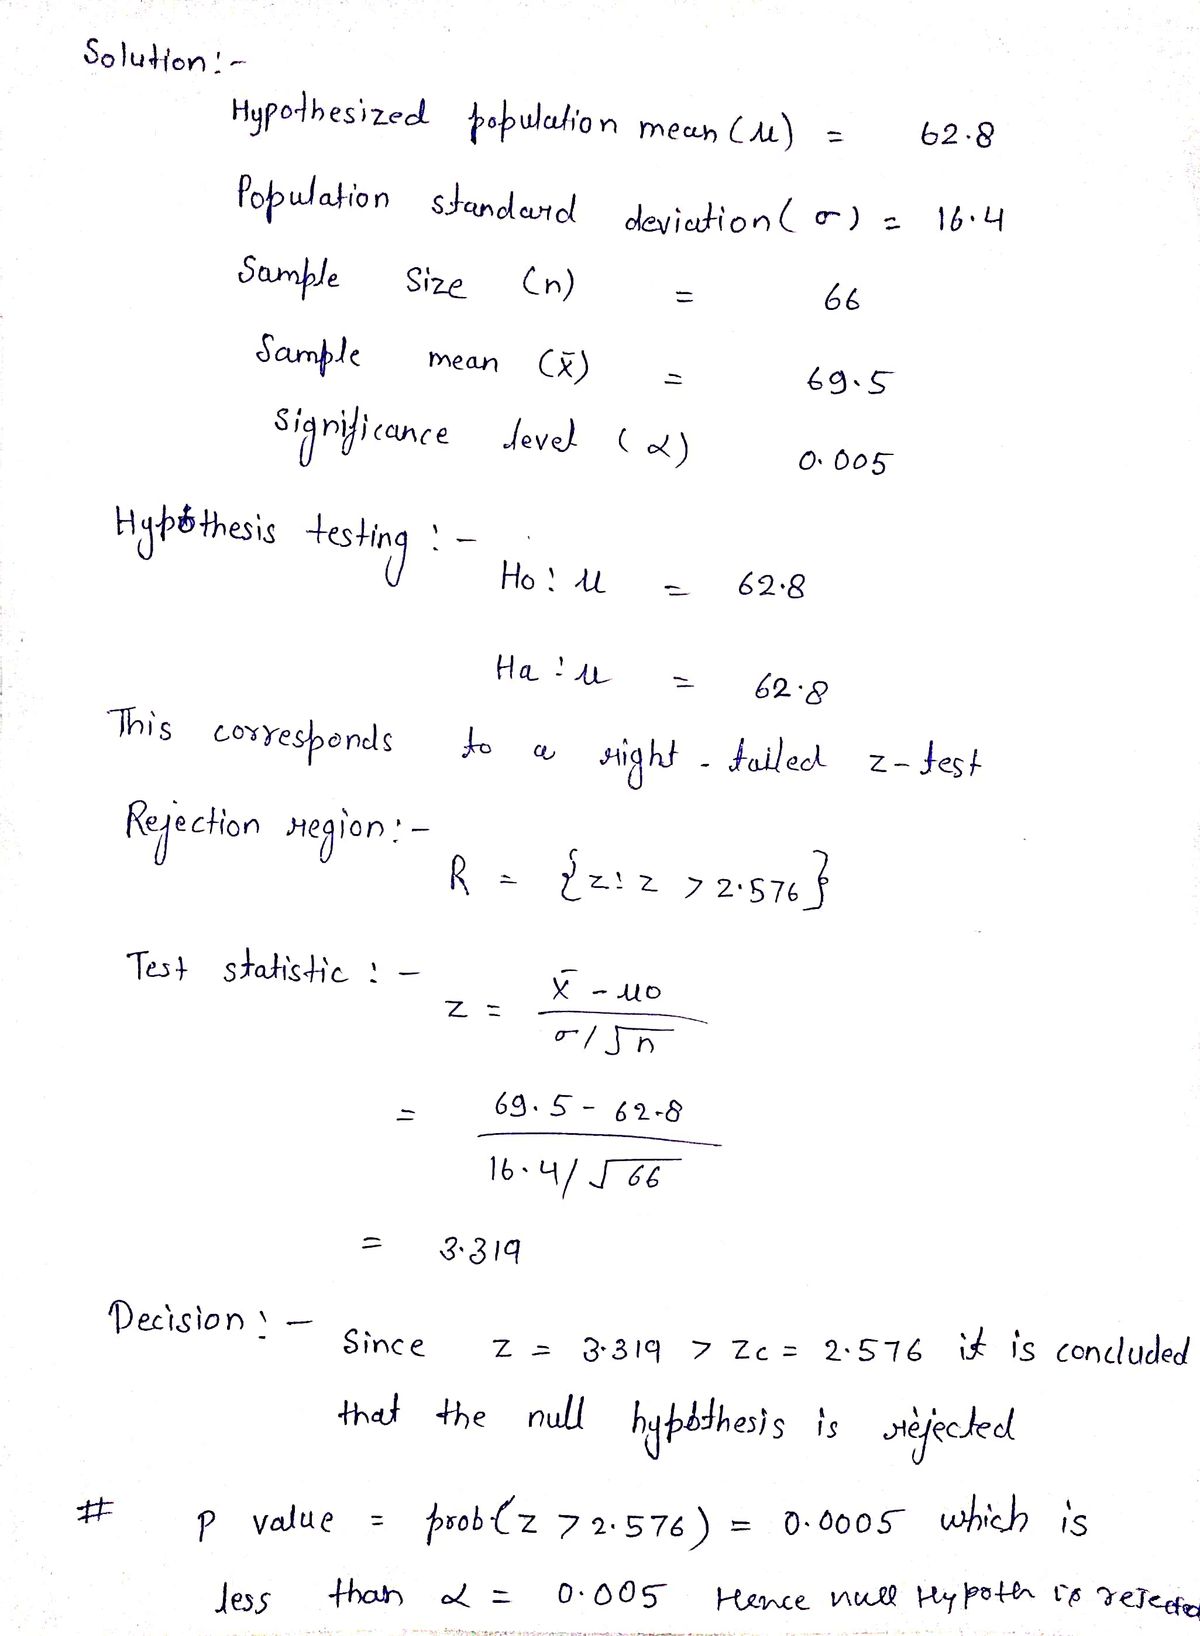 Solution:-
Hypothesized population mean (μ) = 62.8
Population standard deviation (σ) = 16.4
Sample Size (n) = 66
Sample mean (x̄) = 69.5
Significance level (α) 0.005
Hypothesis testing :-
Ho: μ = 62.8
Ha: μ = 62.8
This corresponds to a right-tailed z-test
Rejection region:-
R = {z: z > 2.576}
Test statistic :-
z = x̄ - μ0 / σ/√n
= 69.5 - 62.8 / 16.4/√66
= 3.319
Decision :-
Since z = 3.319 > zc = 2.576 it is concluded
that the null hypothesis is rejected
# P value = prob(z > 2.576) = 0.0005 which is
less than α = 0.005 Hence null Hypoth is rejected